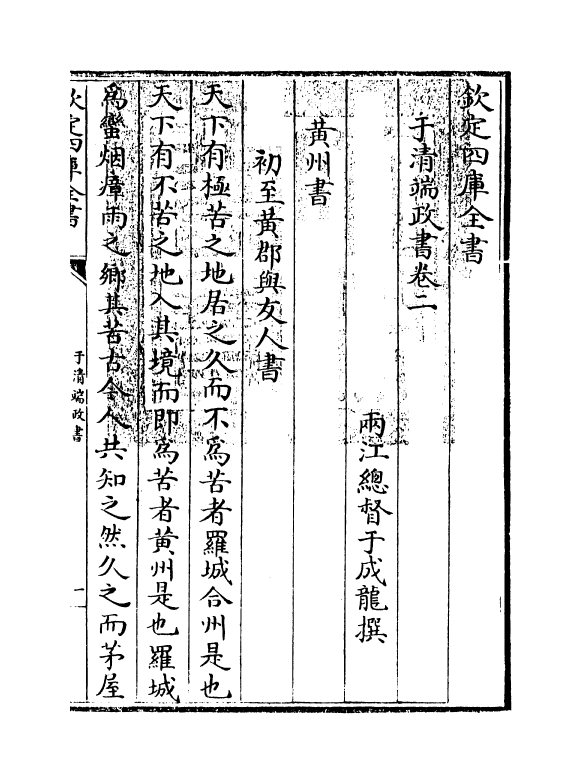 欽定四庫全書
于清端政書卷二
兩江總督于成龍撰
黃州書
初至黃郡與友人書
天下有極苦之地居之久而不為苦者羅城合州是也
天下有不苦之地入其境而即為苦者黃州是也羅城
為蠻烟瘴雨之鄉其苦古今人共知之然久之而茅屋
欽定四庫全書
于清端政書
一